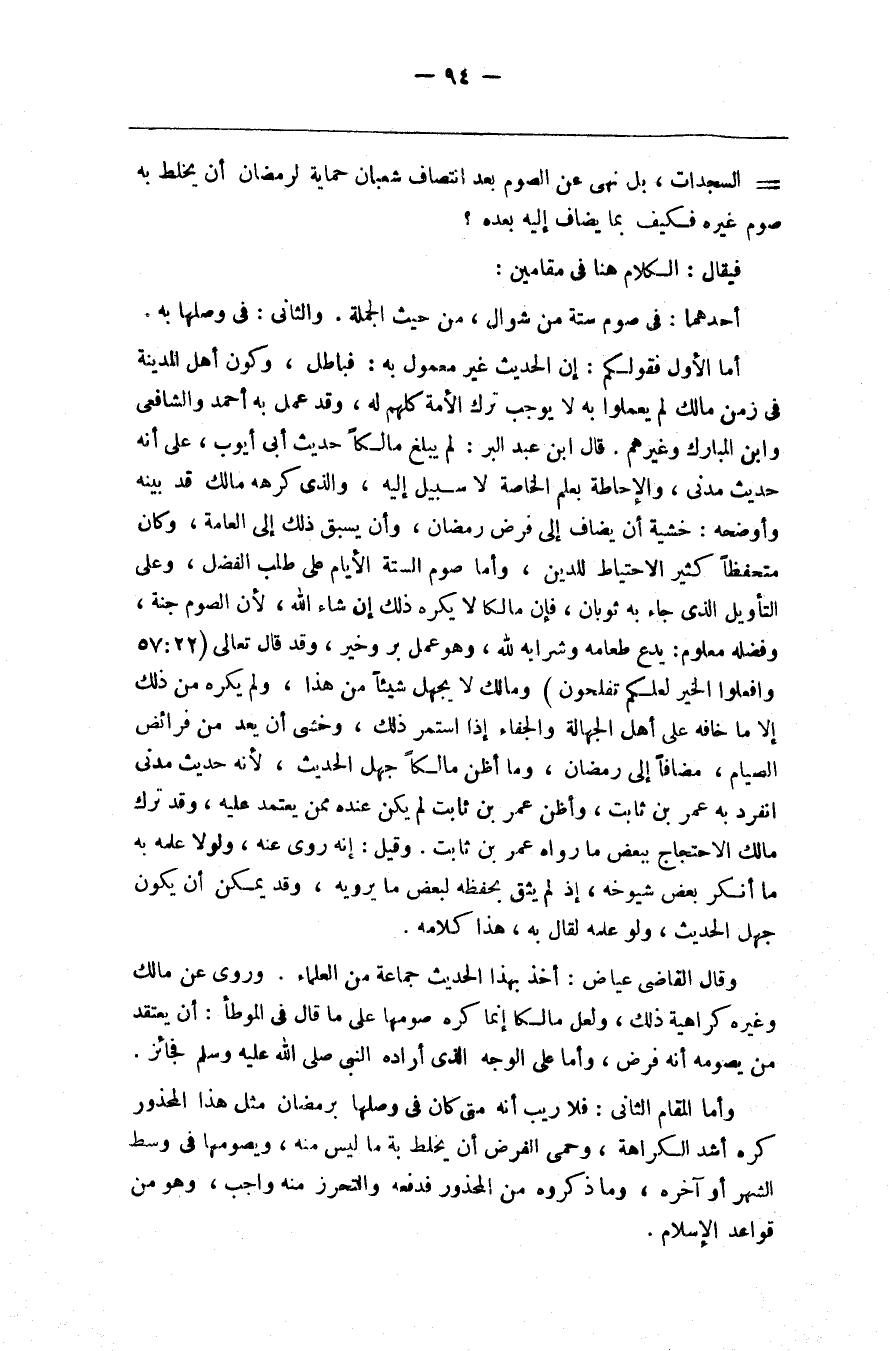 — ٩٤ —
= السجدات ، بل نهى عن الصوم بعد انتصاف شعبان حماية لرمضان أن يخلط به
صوم غيره فكيف بما يضاف إليه بعده ؟
فيقال : الكلام هنا فى مقامين :
أحدهما : فى صوم ستة من شوال ، من حيث الجملة . والثانى : فى وصلها به .
أما الأول فقولكم : إن الحديث غير معمول به : فباطل ، وكون أهل المدينة
فى زمن مالك لم يعملوا به لا يوجب ترك الأمة كلهم له ، وقد عمل به أحمد والشافعى
وابن المبارك وغيرهم . قال ابن عبد البر : لم يبلغ مالكاً حديث أبى أيوب ، على أنه
حديث مدنى ، والإحاطة بعلم الخاصة لا سبيل إليه ، والذى كرهه مالك قد بينه
وأوضحه : خشية أن يضاف إلى فرض رمضان ، وأن يسبق ذلك إلى العامة ، وكان
متحفظاً كثير الاحتياط للدين ، وأما صوم الستة الأيام على طلب الفضل ، وعلى
التأويل الذى جاء به ثوبان ، فإن مالكا لا يكره ذلك إن شاء الله ، لأن الصوم جنة ،
وفضله معلوم : يدع طعامه وشرابه لله ، وهو عمل بر وخير ، وقد قال تعالى (٥٧:٢٢
وافعلوا الخير لعلكم تفلحون ) ومالك لا يجهل شيئاً من هذا ، ولم يكره من ذلك
إلا ما خافه على أهل الجهالة والجفاء إذا استمر ذلك ، وخشى أن يعد من فرائض
الصيام ، مضافاً إلى رمضان ، وما أظن مالكاً جهل الحديث ، لأنه حديث مدنى
انفرد به عمر بن ثابت ، وأظن عمر بن ثابت لم يكن عنده ممن يعتمد عليه ، وقد ترك
مالك الاحتجاج ببعض ما رواه عمر بن ثابت . وقيل : إنه روى عنه ، ولولا علمه به
ما أنكر بعض شيوخه ، إذ لم يثق بحفظه لبعض ما يرويه ، وقد يمكن أن يكون
جهل الحديث ، ولو علمه لقال به ، هذا كلامه .
وقال القاضى عياض : أخذ بهذا الحديث جماعة من العلماء . وروى عن مالك
وغيره كراهية ذلك ، ولعل مالكا إنما كره صومها على ما قال فى الموطأ : أن يعتقد
من يصومه أنه فرض ، وأما على الوجه الذى أراده النبى صلى الله عليه وسلم فجائز .
وأما المقام الثانى : فلا ريب أنه متى كان فى وصلها برمضان مثل هذا المحذور
كره أشد الكراهة ، وحمى الفرض أن يخلط بة ما ليس منه ، ويصومها فى وسط
الشهر أو آخره ، وما ذكروه من المحذور فدفعه والتحرز منه واجب ، وهو من
قواعد الإسلام .